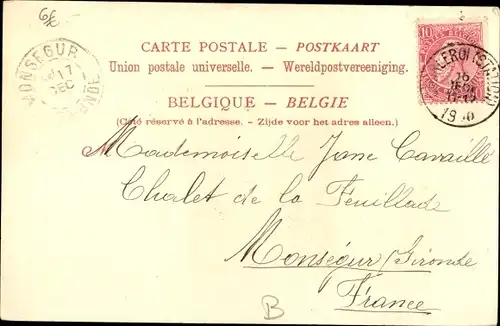 6/£
MONSEGUR
17
DEC
CARTE POSTALE — POSTKAART
Union postale universelle. — Wereldpostvereeniging.
BELGIQUE — BELGIE
(Côté réservé à l'adresse. - Zijde voor het adres alleen.)
10
16
DEC
Mademoiselle Jane Cavaillé
Chalet de la Feuillade
Monségur (Gironde
France
B